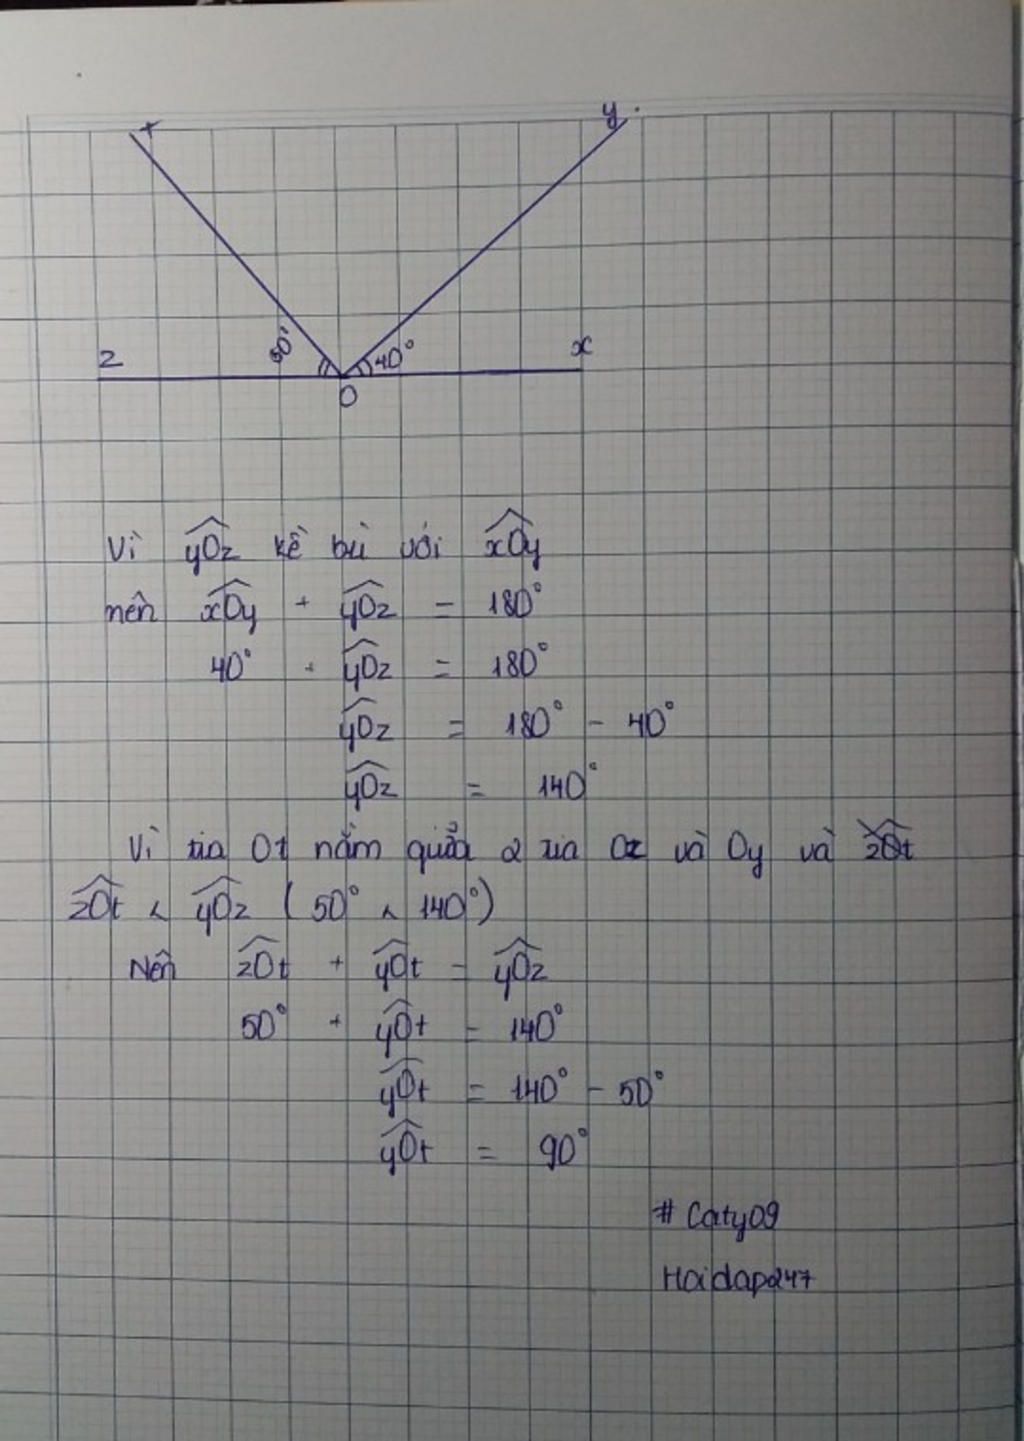 t y
z 50° 40° x
O
Vì yOz kề bù với xOy
nên xOy + yOz = 180°
40° + yOz = 180°
yOz = 180° - 40°
yOz = 140°
Vì tia Ot nằm giữa 2 tia Oz và Oy và zOt
zOt < yOz (50° < 140°)
Nên zOt + yOt = yOz
50° + yOt = 140°
yOt = 140° - 50°
yOt = 90°
# Caty09
Hoidap247